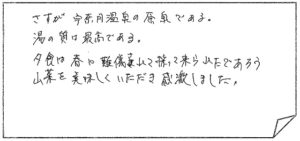 さすが宇奈月温泉の原泉である。
湯の質は最高である。
夕食は春に難儀していて採って来られたであろう
山菜を美味しくいただき感激しました。